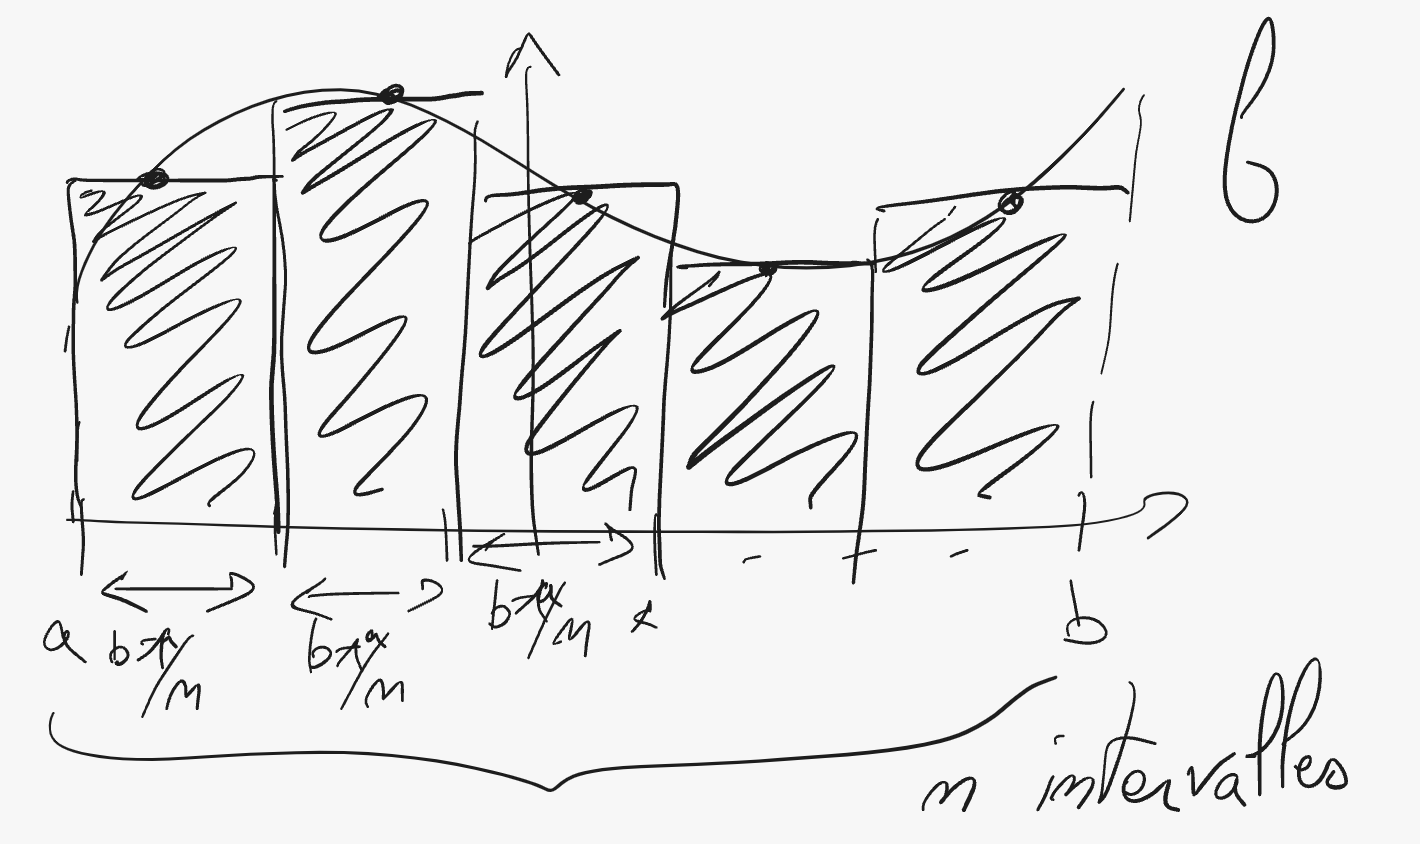 f
a b-a/n b-a/n b-a/n b
n intervalles